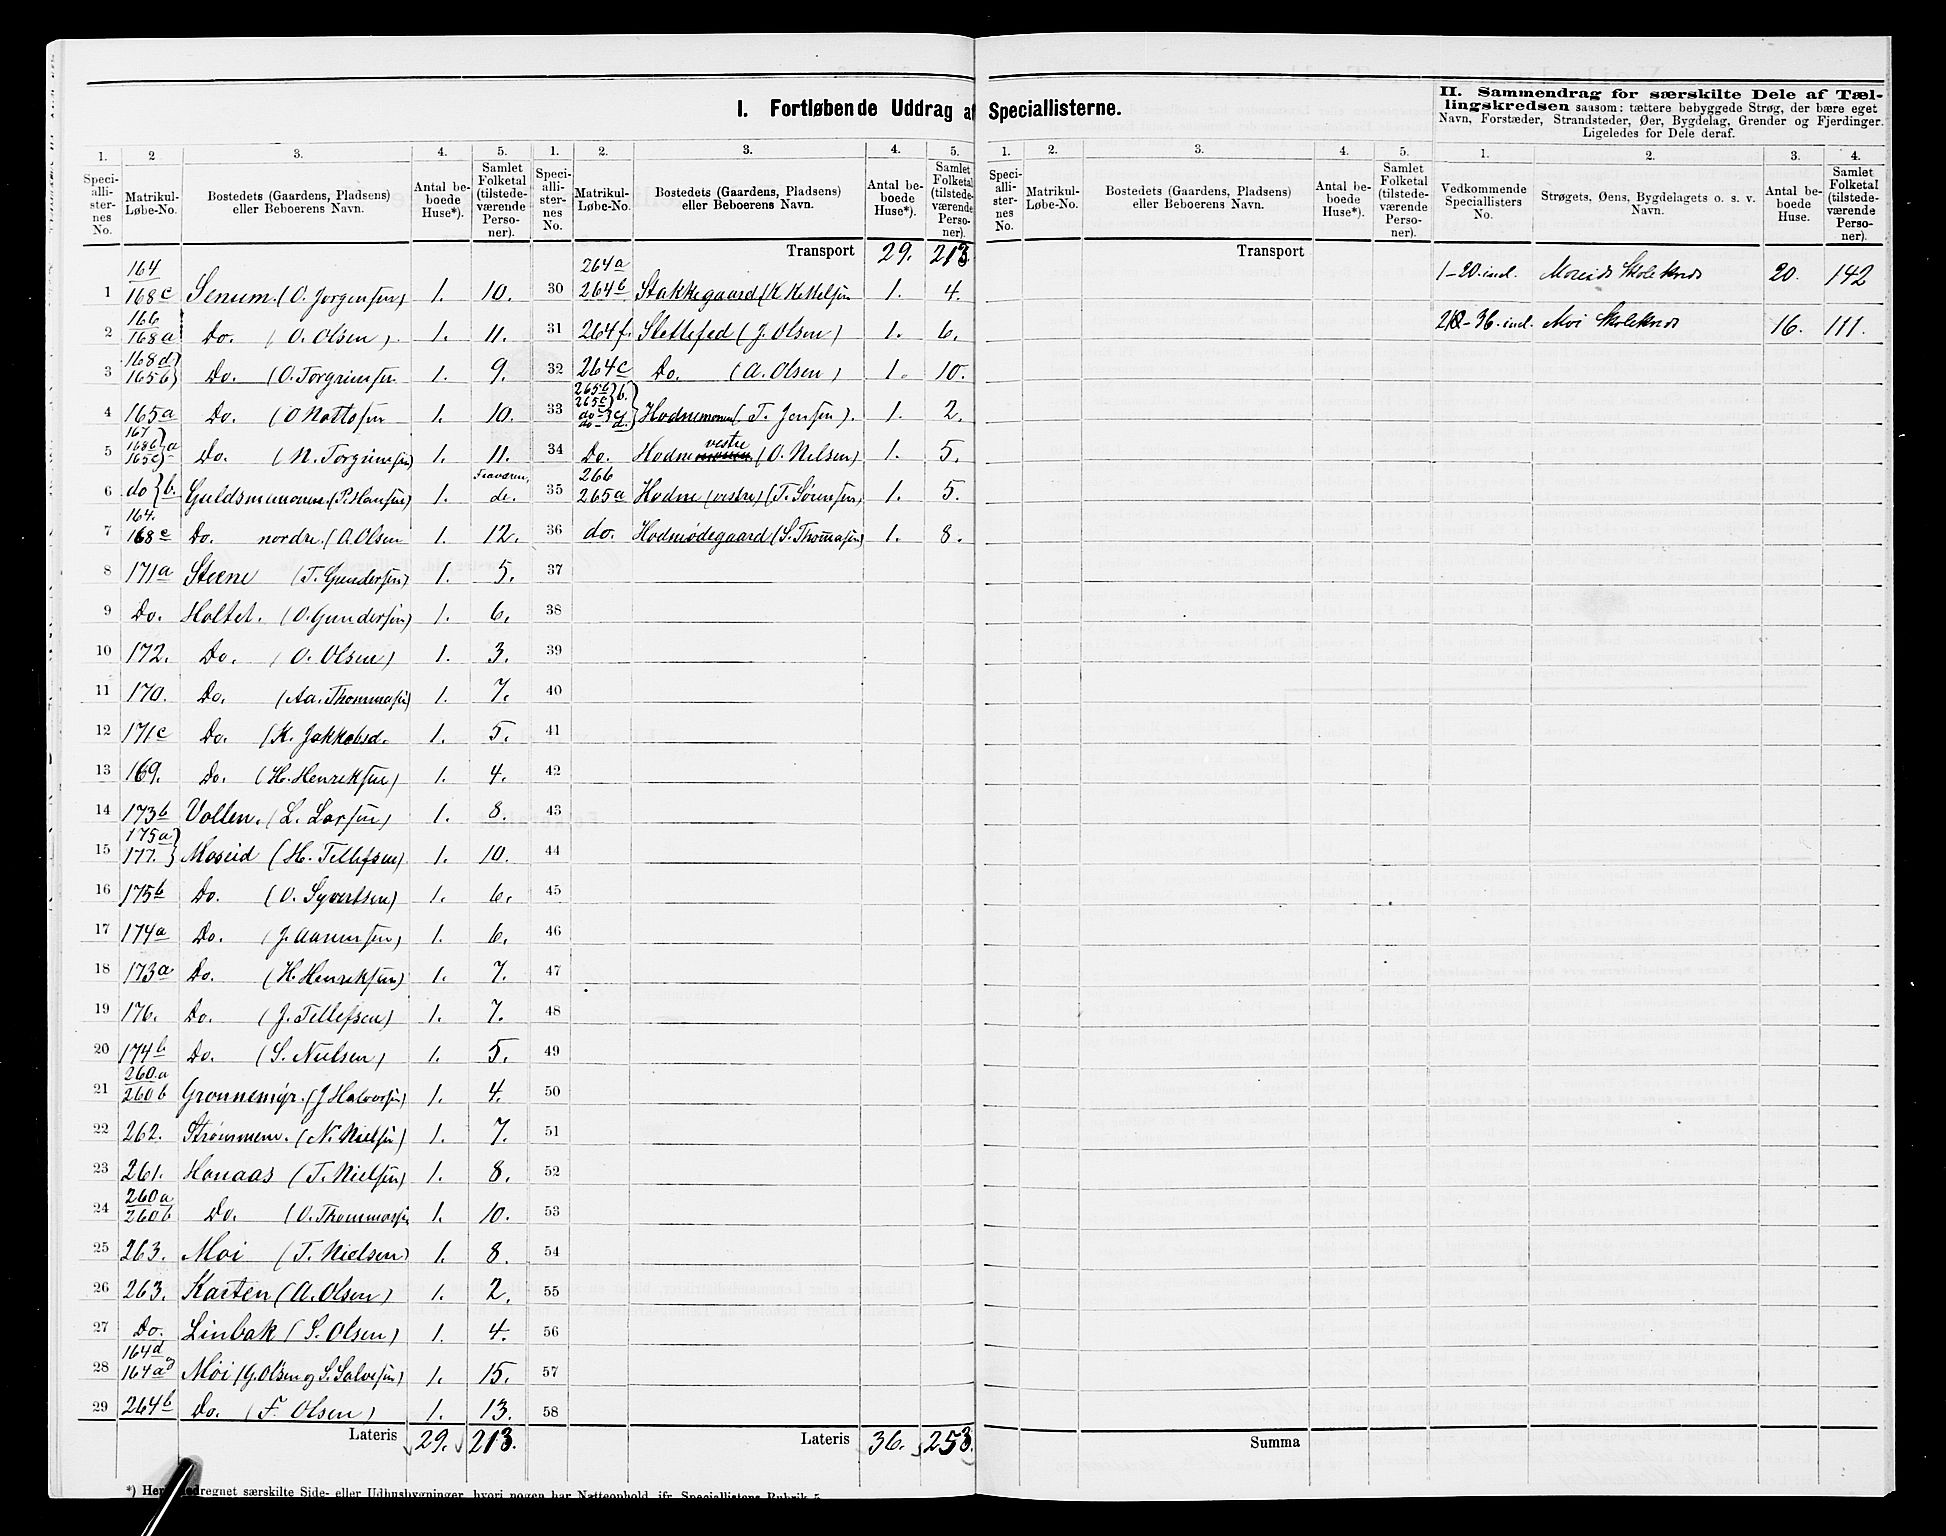 I. Fortløbende Uddrag af Speciallisterne.
II. Sammendrag for særskilte Dele af Tællingskredsen saasom: tættere bebyggede Strøg, der bære eget Navn, Forstæder, Strandsteder, Øer, Bygdelag, Grender og Fjerdinger. Ligeledes for Dele deraf.
1. 2 3. 4. 5. 1. 2. 3. 4. 5. 1. 2. 3. 4. 5. 1. 2. 3. 4.
Speciallisternes No. Matrikul-Løbe-No. Bostedets (Gaardens, Pladsens) eller Beboerens Navn. Antal beboede Huse*). Samlet Folketal (tilstedeværende Personer).
Speciallisternes No. Matrikul-Løbe-No. Bostedets (Gaardens, Pladsens) eller Beboerens Navn. Antal beboede Huse*). Samlet Folketal (tilstedeværende Personer).
Speciallisternes No. Matrikul-Løbe-No. Bostedets (Gaardens, Pladsens) eller Beboerens Navn. Antal beboede Huse*). Samlet Folketal (tilstedeværende Personer).
Vedkommende Speciallisters No. Strøgets, Øens, Bygdelagets o. s. v. Navn. Antal beboede Huse. Samlet Folketal (tilstedeværende Personer).
1 164 168c Senum. (O. Jorgensen) 1. 10.
2 166 168a Do. (O. Olsen) 1. 11.
3 168d 165b Do. (O. Torgrimsen 1. 9.
4 165a Do. (O Nottosen 1. 10.
5 167 168b 165c } a Do. (N. Torgrimsen) 1. 11.
6 do } b. Guldsmemoen (P. Hansen) 1. Fraværende.
7 164. 168e Do. nordre. (A. Olsen 1. 12.
8 171a Steene (T. Gundersen) 1. 5.
9 Do. Holtet. (O. Gundersen) 1. 6.
10 172. Do. (O. Olsen) 1. 3.
11 170. Do. (Aa. Thommasen) 1. 7.
12 171c Do. (K. Jakkobsd. 1. 5.
13 169. Do. (H. Henriksen) 1. 4.
14 173b Vollen. (L. Larsen) 1. 8.
15 175a 177. } Moseid (H. Tellefsen) 1. 10.
16 175b Do. (O. Syvertsen) 1. 6.
17 174a Do. (J. Aanensen) 1. 6.
18 173a Do. (H. Henriksen) 1. 7.
19 176. Do. (J. Tellefsen) 1. 7.
20 174b Do. (S. Nielsen) 1. 5.
21 260.a 260b Grønnemyr. (J Halvorsen) 1. 4.
22 262. Strømmem. (N. Nielsen) 1. 7.
23 261. Honaas (T. Nielsen) 1. 8.
24 260a 260b Do. (O. Thommasen 1. 10.
25 263. Moi (T. Nielsen) 1. 8.
26 263. Kasten (A. Olsen) 1. 2.
27 Do. Linbak (S. Olsen) 1. 4.
28 164d 164a Moi (G. Olsen og S. Salvesen) 1. 15.
29 264b Do. (F. Olsen) 1. 13.
Lateris 29. 213.
Transport 29. 213
30 264a 264b Stakkegaard (K Kittelsen 1. 4.
31 264f. Slettefed (J. Olsen) 1. 6.
32 264c Do. (A. Olsen) 1. 10.
33 265b 265c } b. do do Hodnemoen (T. Jensen). 1. 2.
34 Do. Hodne vestre (O. Nelsen) 1. 5.
35 266 265a Hodne (vestre) (T. Sørensen) 1. 5.
36 do. Hodnødegaard (S. Thomasen) 1. 8.
37
38
39
40
41
42
43
44
45
46
47
48
49
50
51
52
53
54
55
56
57
58
Lateris 36. 253.
Transport
Summa
1-20. incl. Moseids Skolekreds 20. 142
21-36. incl. Moi Skolekreds 16. 111.
*) Her medregnet særskilte Side- eller Udhusbygninger, hvori nogen har Natteophold, jfr. Speciallistens Rubrik 5.